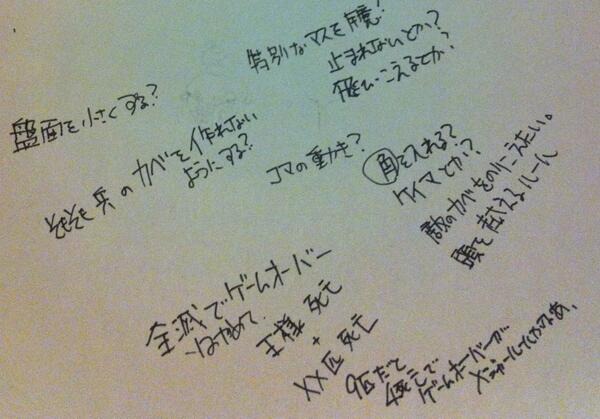 特別なマスを用意!
止まれないとか?
飛びこえるとか?
盤面を小さくする?
そもそも兵のカベを作れない
ようにする?
コマの動き?
角を入れる?
ケイマとか?
敵のカベをのりこえたい。
頭で越えるルール
全滅でゲームオーバー
はやめて
王様 死亡
+
XX匹 死亡
9匹だと
4死亡で
ゲームオーバーが